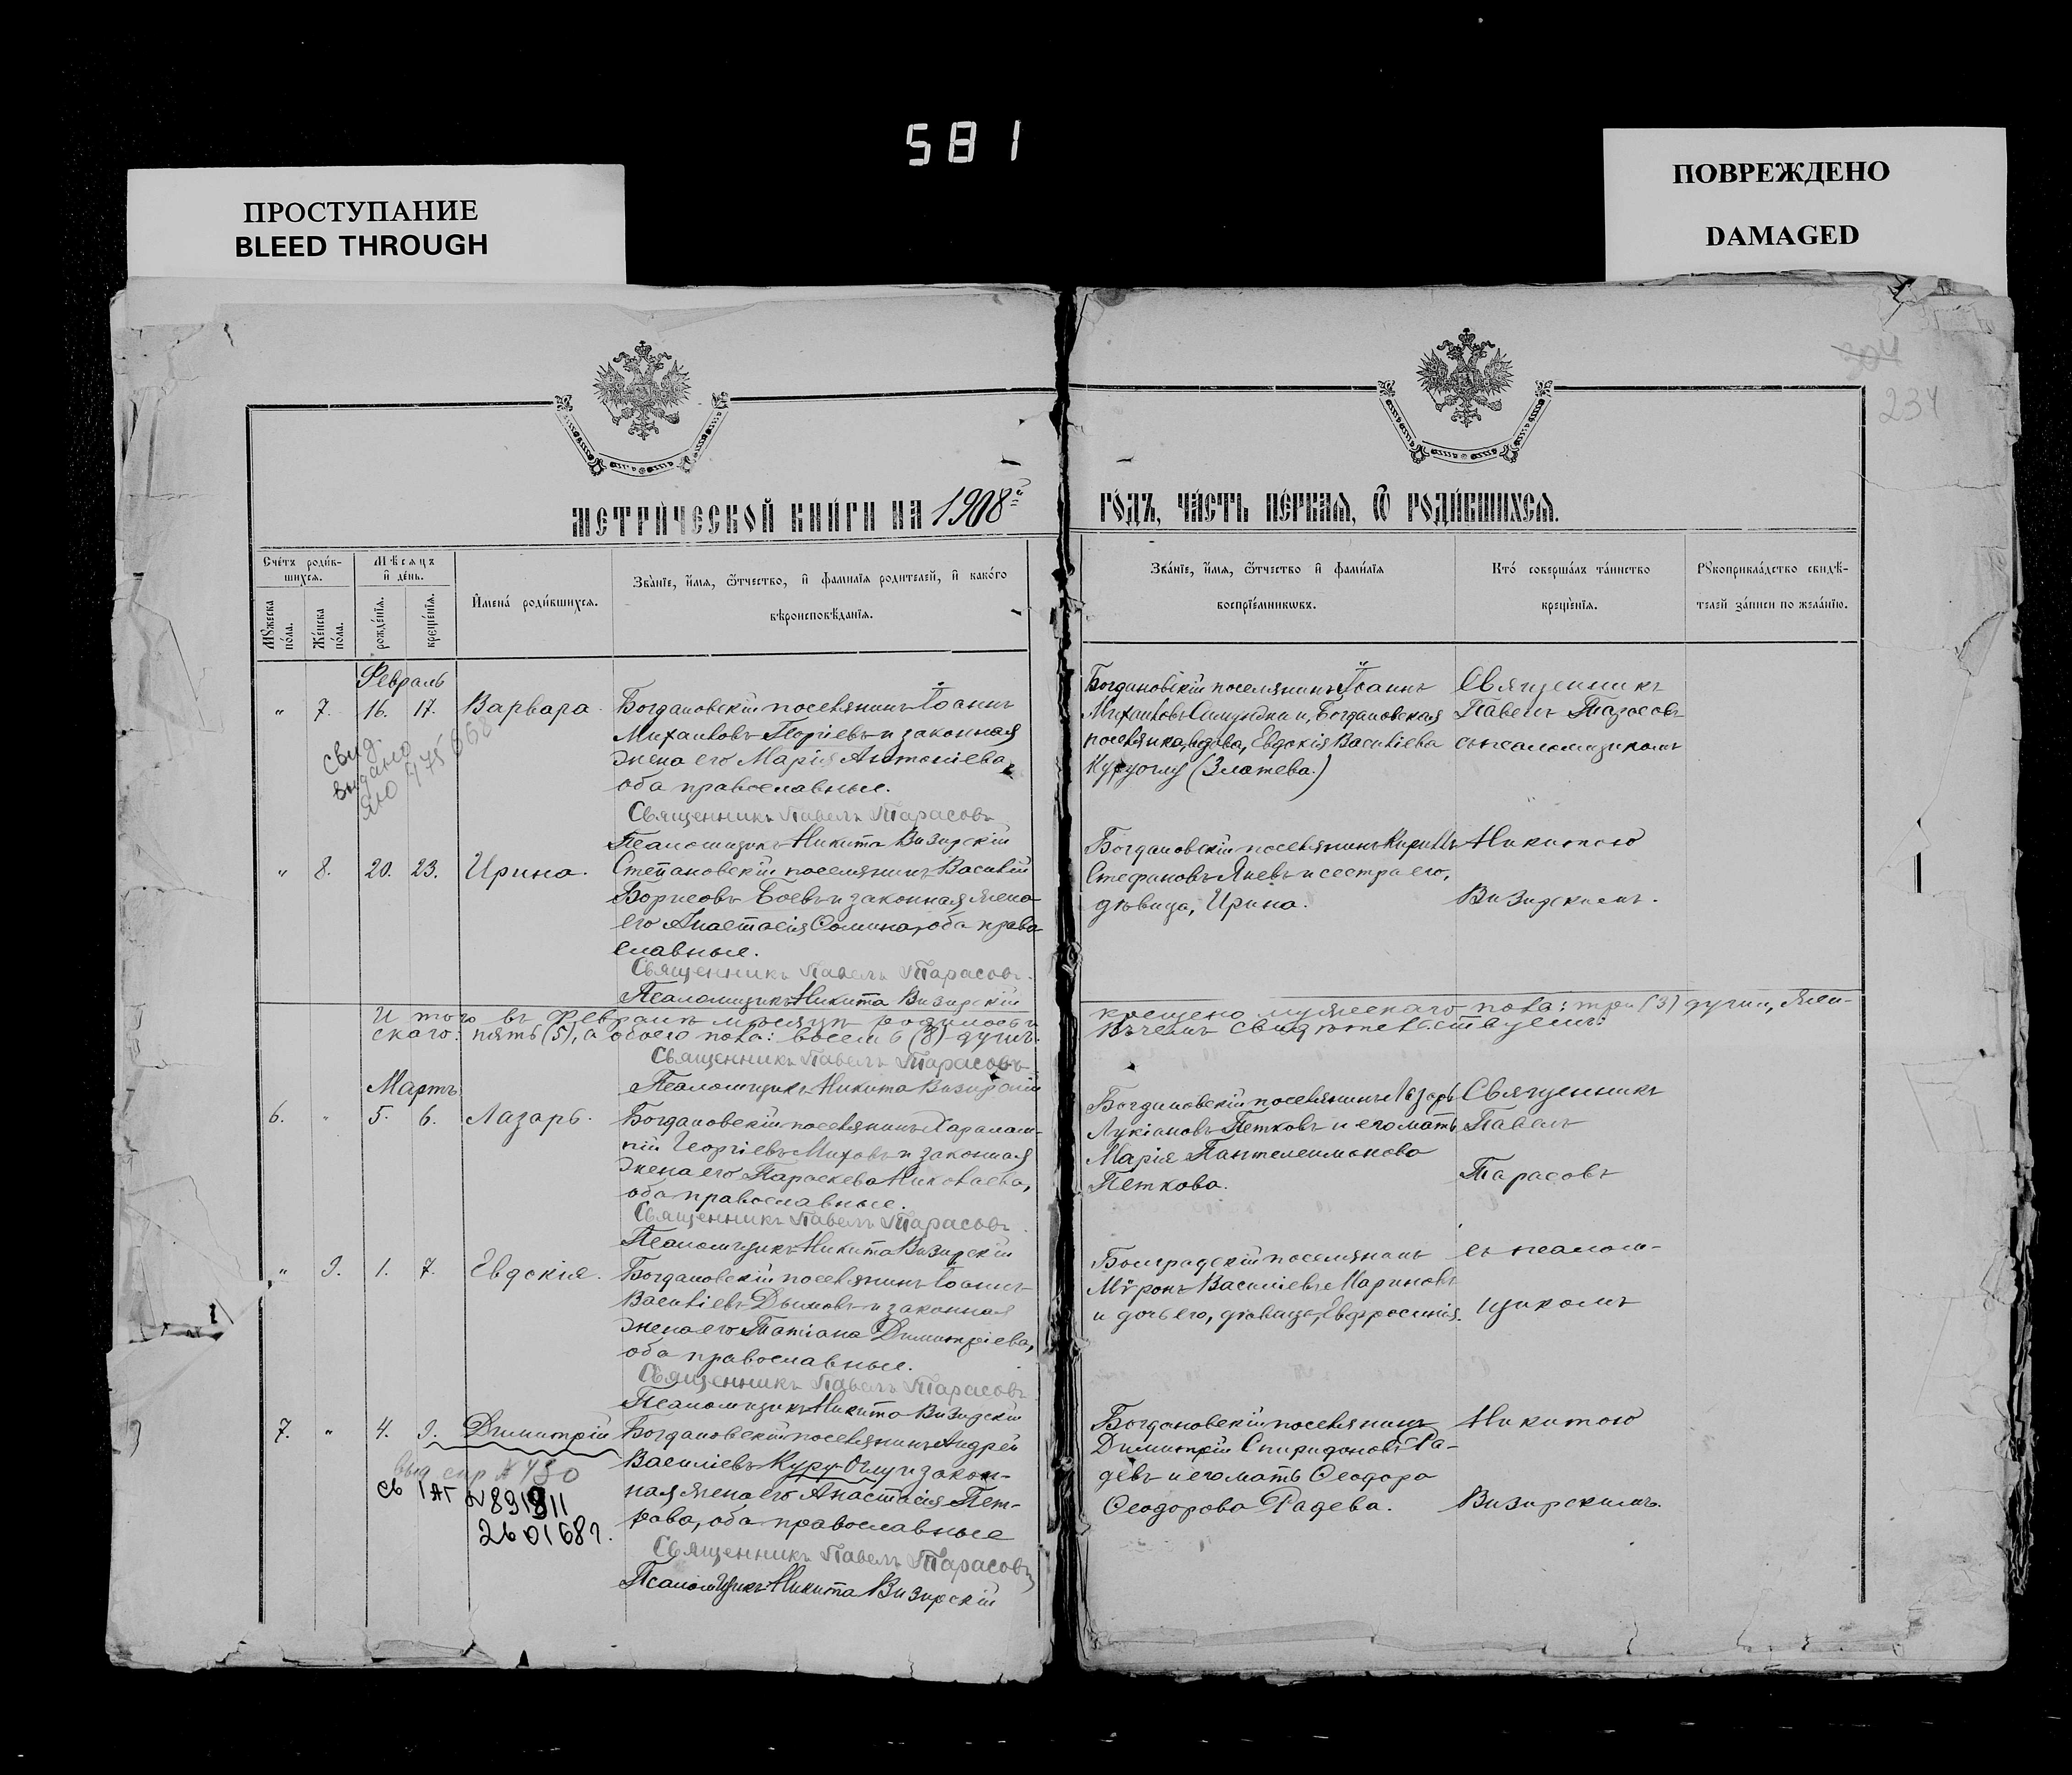 581
ПРОСТУПАНИЕ
BLEED THROUGH
ПОВРЕЖДЕНО
DAMAGED
304
234
МЕТРИ́ЧЕСКОЙ КНИ́ГИ НА 1908й
ГО́ДЪ, ЧА́СТЬ ПЕ́РВАѦ, Ѡ҃ РОДИ́ВШИХСѦ.
Сче́тъ роди́в-
шихсѧ.
Мꙋжеска по́ла.
Же́нска по́ла.
Мѣ́сѧцъ
и҆ де́нь.
рожде́нїѧ.
креще́нїѧ.
И҆мена̀ роди́вшихсѧ.
Зва́нїе, и҆́мѧ, ѻ҆́тчество, и҆ фамилїѧ родителей, и҆ како́гѡ
вѣроисповѣ́данїѧ.
Зва́нїе, и҆́мѧ, ѻ҆́тчество и҆ фами́лїѧ
воспрїе́мникѡвъ.
Кто̀ соверша́лъ та́инство
креще́нїѧ.
Рꙋкоприкла́дство свидѣ́-
телей за́писи по жела́нїю.
Февраль
" 7. 16. 17. Варвара.
Богдановскій поселянинъ Іоаннъ
Михаиловъ Георгіевъ и законная
жена его Марія Антоніева,
оба православные.
Священникъ Павелъ Тарасовъ
Псаломщикъ Никита Визирскій
Богдановскій поселянинъ Іоаннъ
Михаиловъ и, Богдановская
поселянка, вдова, Евдокія Василіева
Куруоглу (Златева.)
Священникъ
Павелъ Тарасовъ
съ псаломщикомъ
свид.
выдано
" 8. 20. 23. Ирина.
Степановскій поселянинъ Василій
Борисовъ Боевъ и законная жена
его Анастасія оба право
славные.
Священникъ Павелъ Тарасовъ.
Псаломщикъ Никита Визирскій
Богдановскій поселянинъ Кириллъ
Стефановъ Яневъ и сестра его,
дѣвица, Ирина.
Никитою
Визирскимъ.
Итого въ Февралѣ мѣсяцѣ родилось и
крещено мужескаго пола: три (3) души, жен-
скаго: пять (5), а обоего пола: восемь (8) душъ.
Въ чемъ свидѣтельствуемъ:
Священникъ Павелъ Тарасовъ
Псаломщикъ Никита Визирскій
Мартъ
6. " 5. 6. Лазарь.
Богдановскій поселянинъ Харалам-
пій Георгіевъ Миховъ и законная
жена его Параскева Николаева,
оба православные.
Священникъ Павелъ Тарасовъ
Псаломщикъ Никита Визирскій
Богдановскій поселянинъ Лазарь
Лукіановъ Петковъ и его мать
Марія Пантелеимонова
Петкова.
Священникъ
Павелъ
Тарасовъ
" 9. 1. 7. Евдокія.
Богдановскій поселянинъ Іоаннъ
Василіевъ Дымовъ и законная
жена его Татіана Димитріева,
оба православные.
Священникъ Павелъ Тарасовъ
Псаломщикъ Никита Визирскій
Болградскій поселянинъ
Мѵронъ Василіевъ Мариновъ
и дочь его, дѣвица, Евфросинія.
съ псалом-
щикомъ
7. " 4. 9. Димитрій
Богдановскій поселянинъ Андрей
Василіевъ Куру-Оглу и закон-
ная жена его Анастасія Пет-
рова, оба православные
Священникъ Павелъ Тарасовъ
Псаломщикъ Никита Визирскій
Богдановскій поселянинъ
Димитрій Спиридоновъ Ра-
девъ и его мать Ѳеодора
Ѳеодорова Радева.
Никитою
Визирскимъ.